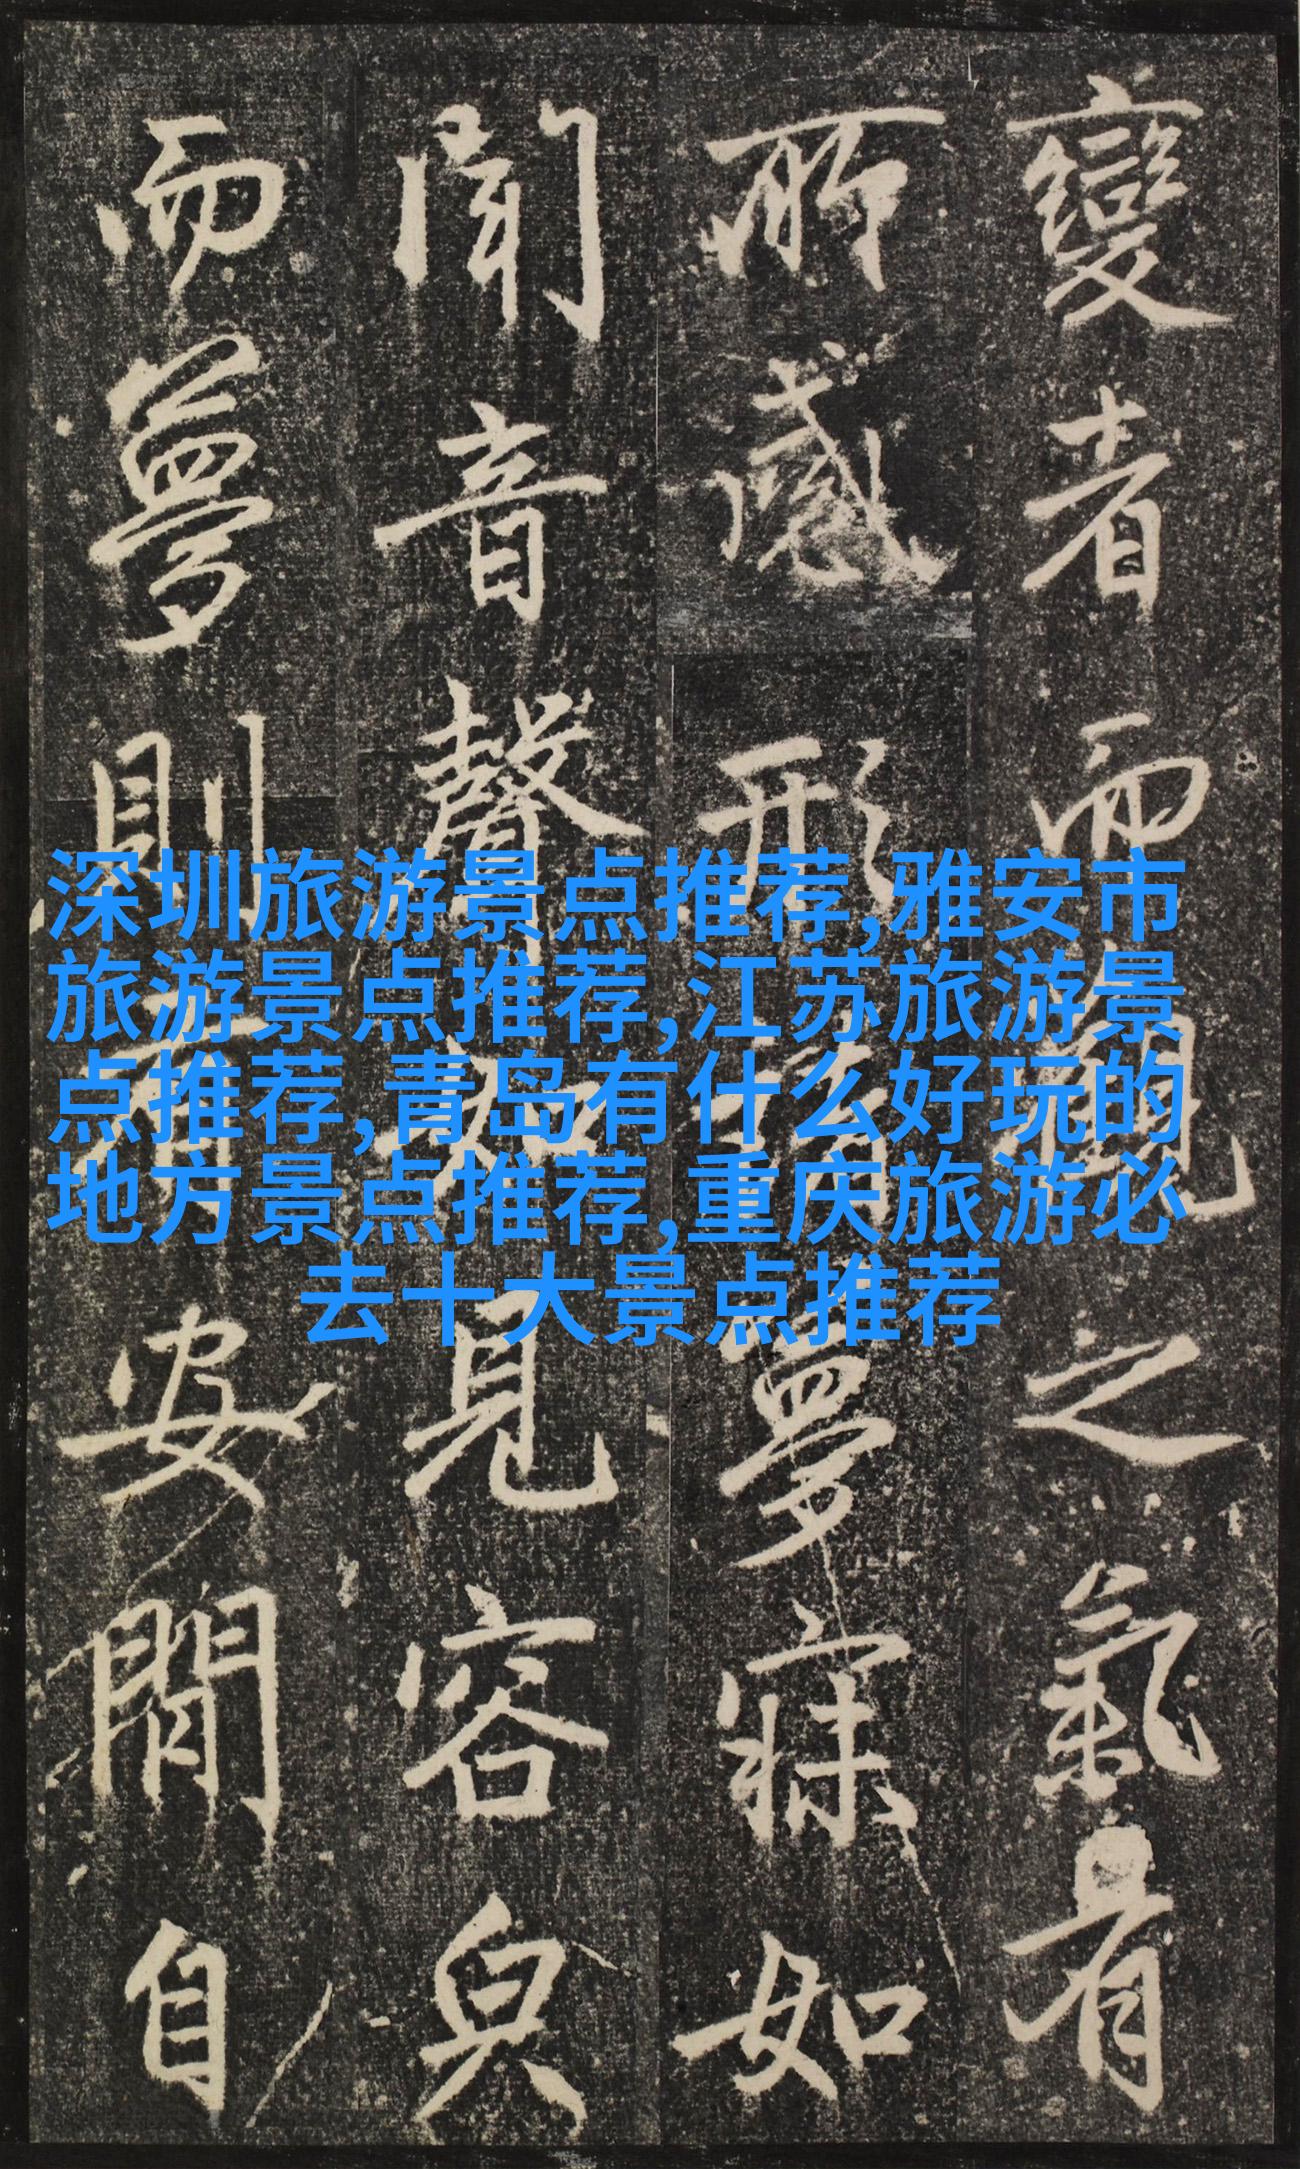 變者而觀之氣有
所感形夢寐如
聞音聲如見容皃
而夢則安閒自
深圳旅游景点推荐,雅安市
旅游景点推荐,江苏旅游景
点推荐,青岛有什么好玩的
地方景点推荐,重庆旅游必
去十大景点推荐